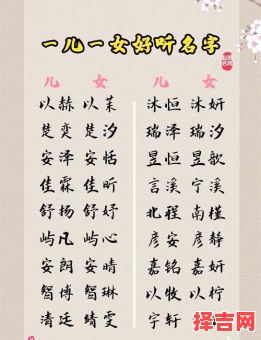 一儿一女好听名字
儿 女 儿 女
以赫 以茉 沐恒 沐妍
楚奕 楚汐 瑞泽 瑞汐
安泽 安恬 昱恒 昱歆
佳霖 佳昕 言溪 宁溪
舒扬 舒妤 北程 南槿
屿凡 屿心 彦安 彦静
安朗 安晴 嘉铭 嘉妍
智博 智琳 以牧 以柠
清廷 靖雯 宇轩
择吉网